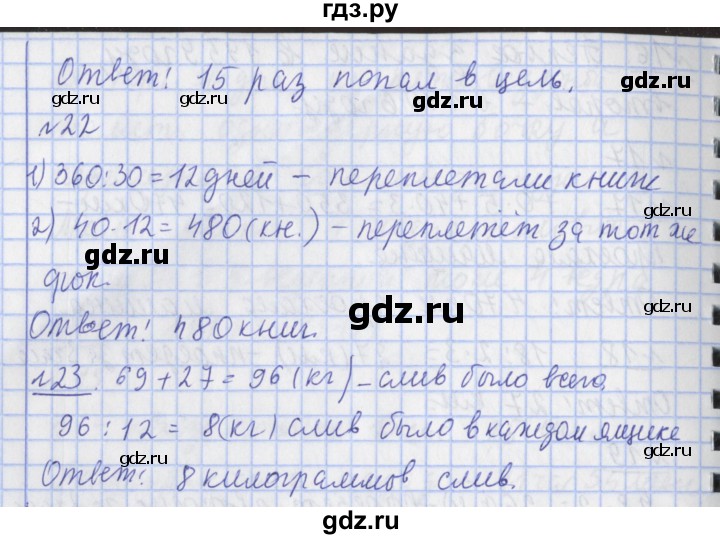 гдз.ру
Ответ! 15 раз попал в цель.
gdz.ru gdz.ru gdz.ru gdz.ru
№22
1) 360:30=12дней – переплетали книж
gdz.ru
2) 40·12=480(кн.) – переплетёт за тот же
gdz.ru gdz.ru
срок.
Ответ! 480книг.
gdz.ru gdz.ru
№23. 69+27=96(кг) – слив было всего.
gdz.ru gdz.ru
96:12=8(кг) слив было в каждом ящике
gdz.ru gdz.ru
Ответ! 8 килограммов слив.
gdz.ru